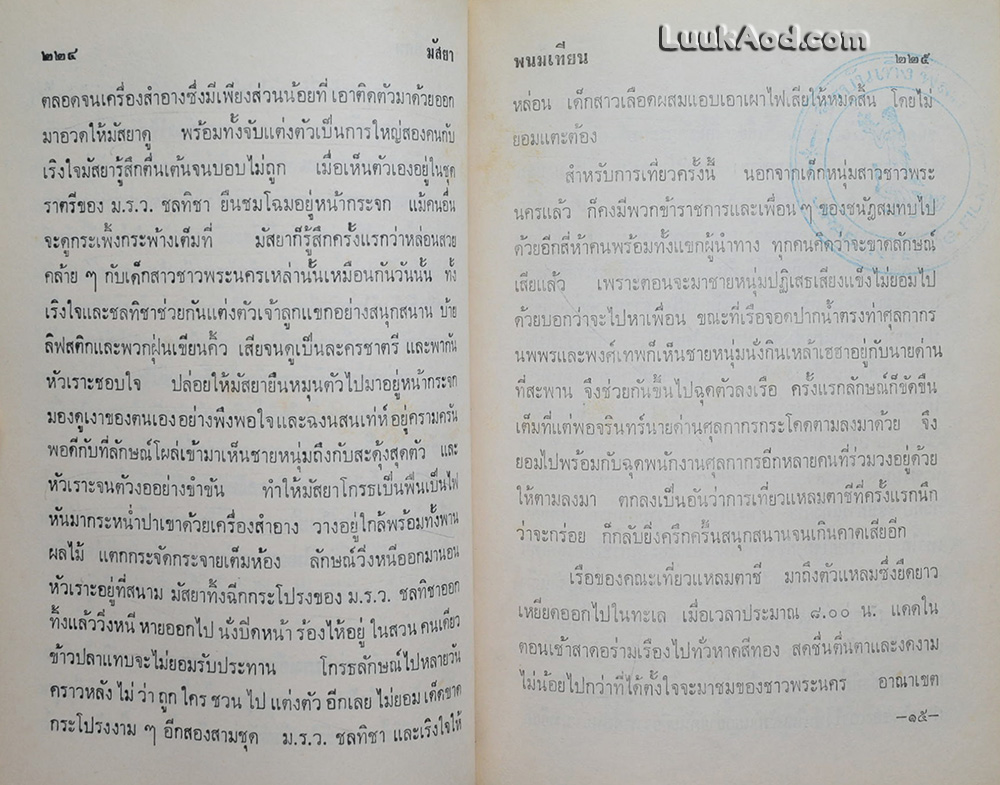 LuukAod.com
๒๒๔ มัสยา
ตลอดจนเครื่องสำอางซึ่งมีเพียงส่วนน้อยที่ เอาติดตัวมาด้วยออก
มาอวดให้มัสยาดู พร้อมทั้งจับแต่งตัวเป็นการใหญ่สองคนกับ
เริงใจมัสยารู้สึกตื่นเต้นจนบอบไม่ถูก เมื่อเห็นตัวเองอยู่ในชุด
ราตรีของ ม.ร.ว. ชลทิชา ยืนชมโฉมอยู่หน้ากระจก แม้คนอื่น
จะดูกระเพิ้งกระพ้างเต็มที่ มัสยาก็รู้สึกครั้งแรกว่าหล่อนสวย
คล้าย ๆ กับเด็กสาวชาวพระนครเหล่านั้นเหมือนกันวันนั้น ทั้ง
เริงใจและชลทิชาช่วยกันแต่งตัวเจ้าลูกแขกอย่างสนุกสนาน บ้าย
ลิฟสติกและพวกฝุ่นเขียนคิ้ว เสียจนดูเป็นละครชาตรี และพากัน
หัวเราะชอบใจ ปล่อยให้มัสยายืนหมุนตัวไปมาอยู่หน้ากระจก
มองดูเงาของตนเอง อย่างพึงพอใจ และฉงนสนเท่ห์ อยู่ครามครัน
พอดีกับที่ลักษณ์โผล่เข้ามาเห็นชายหนุ่มถึงกับสะดุ้งสุดตัว และ
หัวเราะจนตัวงออย่างขำขัน ทำให้มัสยาโกรธเป็นฟืนเป็นไฟ
หันมากระหน่ำปาเขาด้วยเครื่องสำอาง วางอยู่ใกล้พร้อมทั้งพาน
ผลไม้ แตกกระจัดกระจายเต็มห้อง ลักษณ์วิ่งหนีออกมานอน
หัวเราะอยู่ที่สนาม มัสยาทึ้งฉีกกระโปรงของ ม.ร.ว. ชลทิชาออก
ทิ้งแล้ววิ่งหนี หายออกไป นั่งปิดหน้า ร้องไห้อยู่ ในสวน คนเดียว
ข้าวปลาแทบจะไม่ยอมรับประทาน โกรธลักษณ์ไปหลายวัน
คราวหลัง ไม่ ว่า ถูก ใคร ชวน ไป แต่งตัว อีกเลย ไม่ยอม เด็ดขาด
กระโปรงงาม ๆ อีกสองสามชุด ม.ร.ว. ชลทิชา และเริงใจให้
พนมเทียน ๒๒๕
หล่อน เด็กสาวเลือดผสมแอบเอาเผาไฟเสียให้หมดสิ้น โดยไม่
ยอมแตะต้อง
สำหรับการเที่ยวครั้งนี้ นอกจากเด็กหนุ่มสาวชาวพระ
นครแล้ว ก็คงมีพวกข้าราชการและเพื่อน ๆ ของชนัฎสมทบไป
ด้วยอีกสี่ห้าคนพร้อมทั้งแขกผู้นำทาง ทุกคนคิดว่าจะขาดลักษณ์
เสียแล้ว เพราะตอนจะมาชายหนุ่มปฏิเสธเสียงแข็งไม่ยอมไป
ด้วยบอกว่าจะไปหาเพื่อน ขณะที่เรือจอดปากน้ำตรงท่าศุลกากร
นพพรและพงศ์เทพก็เห็นชายหนุ่มนั่งกินเหล้าเฮฮาอยู่กับนายด่าน
ที่สะพาน จึงช่วยกันขึ้นไปฉุดตัวลงเรือ ครั้งแรกลักษณ์ก็ขัดขืน
เต็มที่แต่พอจรินทร์นายด่านศุลกากรกระโดดตามลงมาด้วย จึง
ยอมไปพร้อมกับฉุดพนักงานศุลกากรอีกหลายคนที่ร่วมวงอยู่ด้วย
ให้ตามลงมา ตกลงเป็นอันว่าการเที่ยวแหลมตาชีที่ครั้งแรกนึก
ว่าจะกร่อย ก็กลับยิ่งครึกครื้นสนุกสนานจนเกินคาดเสียอีก
เรือของคณะเที่ยวแหลมตาชี มาถึงตัวแหลมซึ่งยืดยาว
เหยียดออกไปในทะเล เมื่อเวลาประมาณ ๘.๐๐ น. แดดใน
ตอนเช้าสาดอร่ามเรืองไปทั่วหาดสีทอง สดชื่นตื่นตาและงดงาม
ไม่น้อยไปกว่าที่ได้ตั้งใจจะมาชมของชาวพระนคร อาณาเขต
—๑๕—